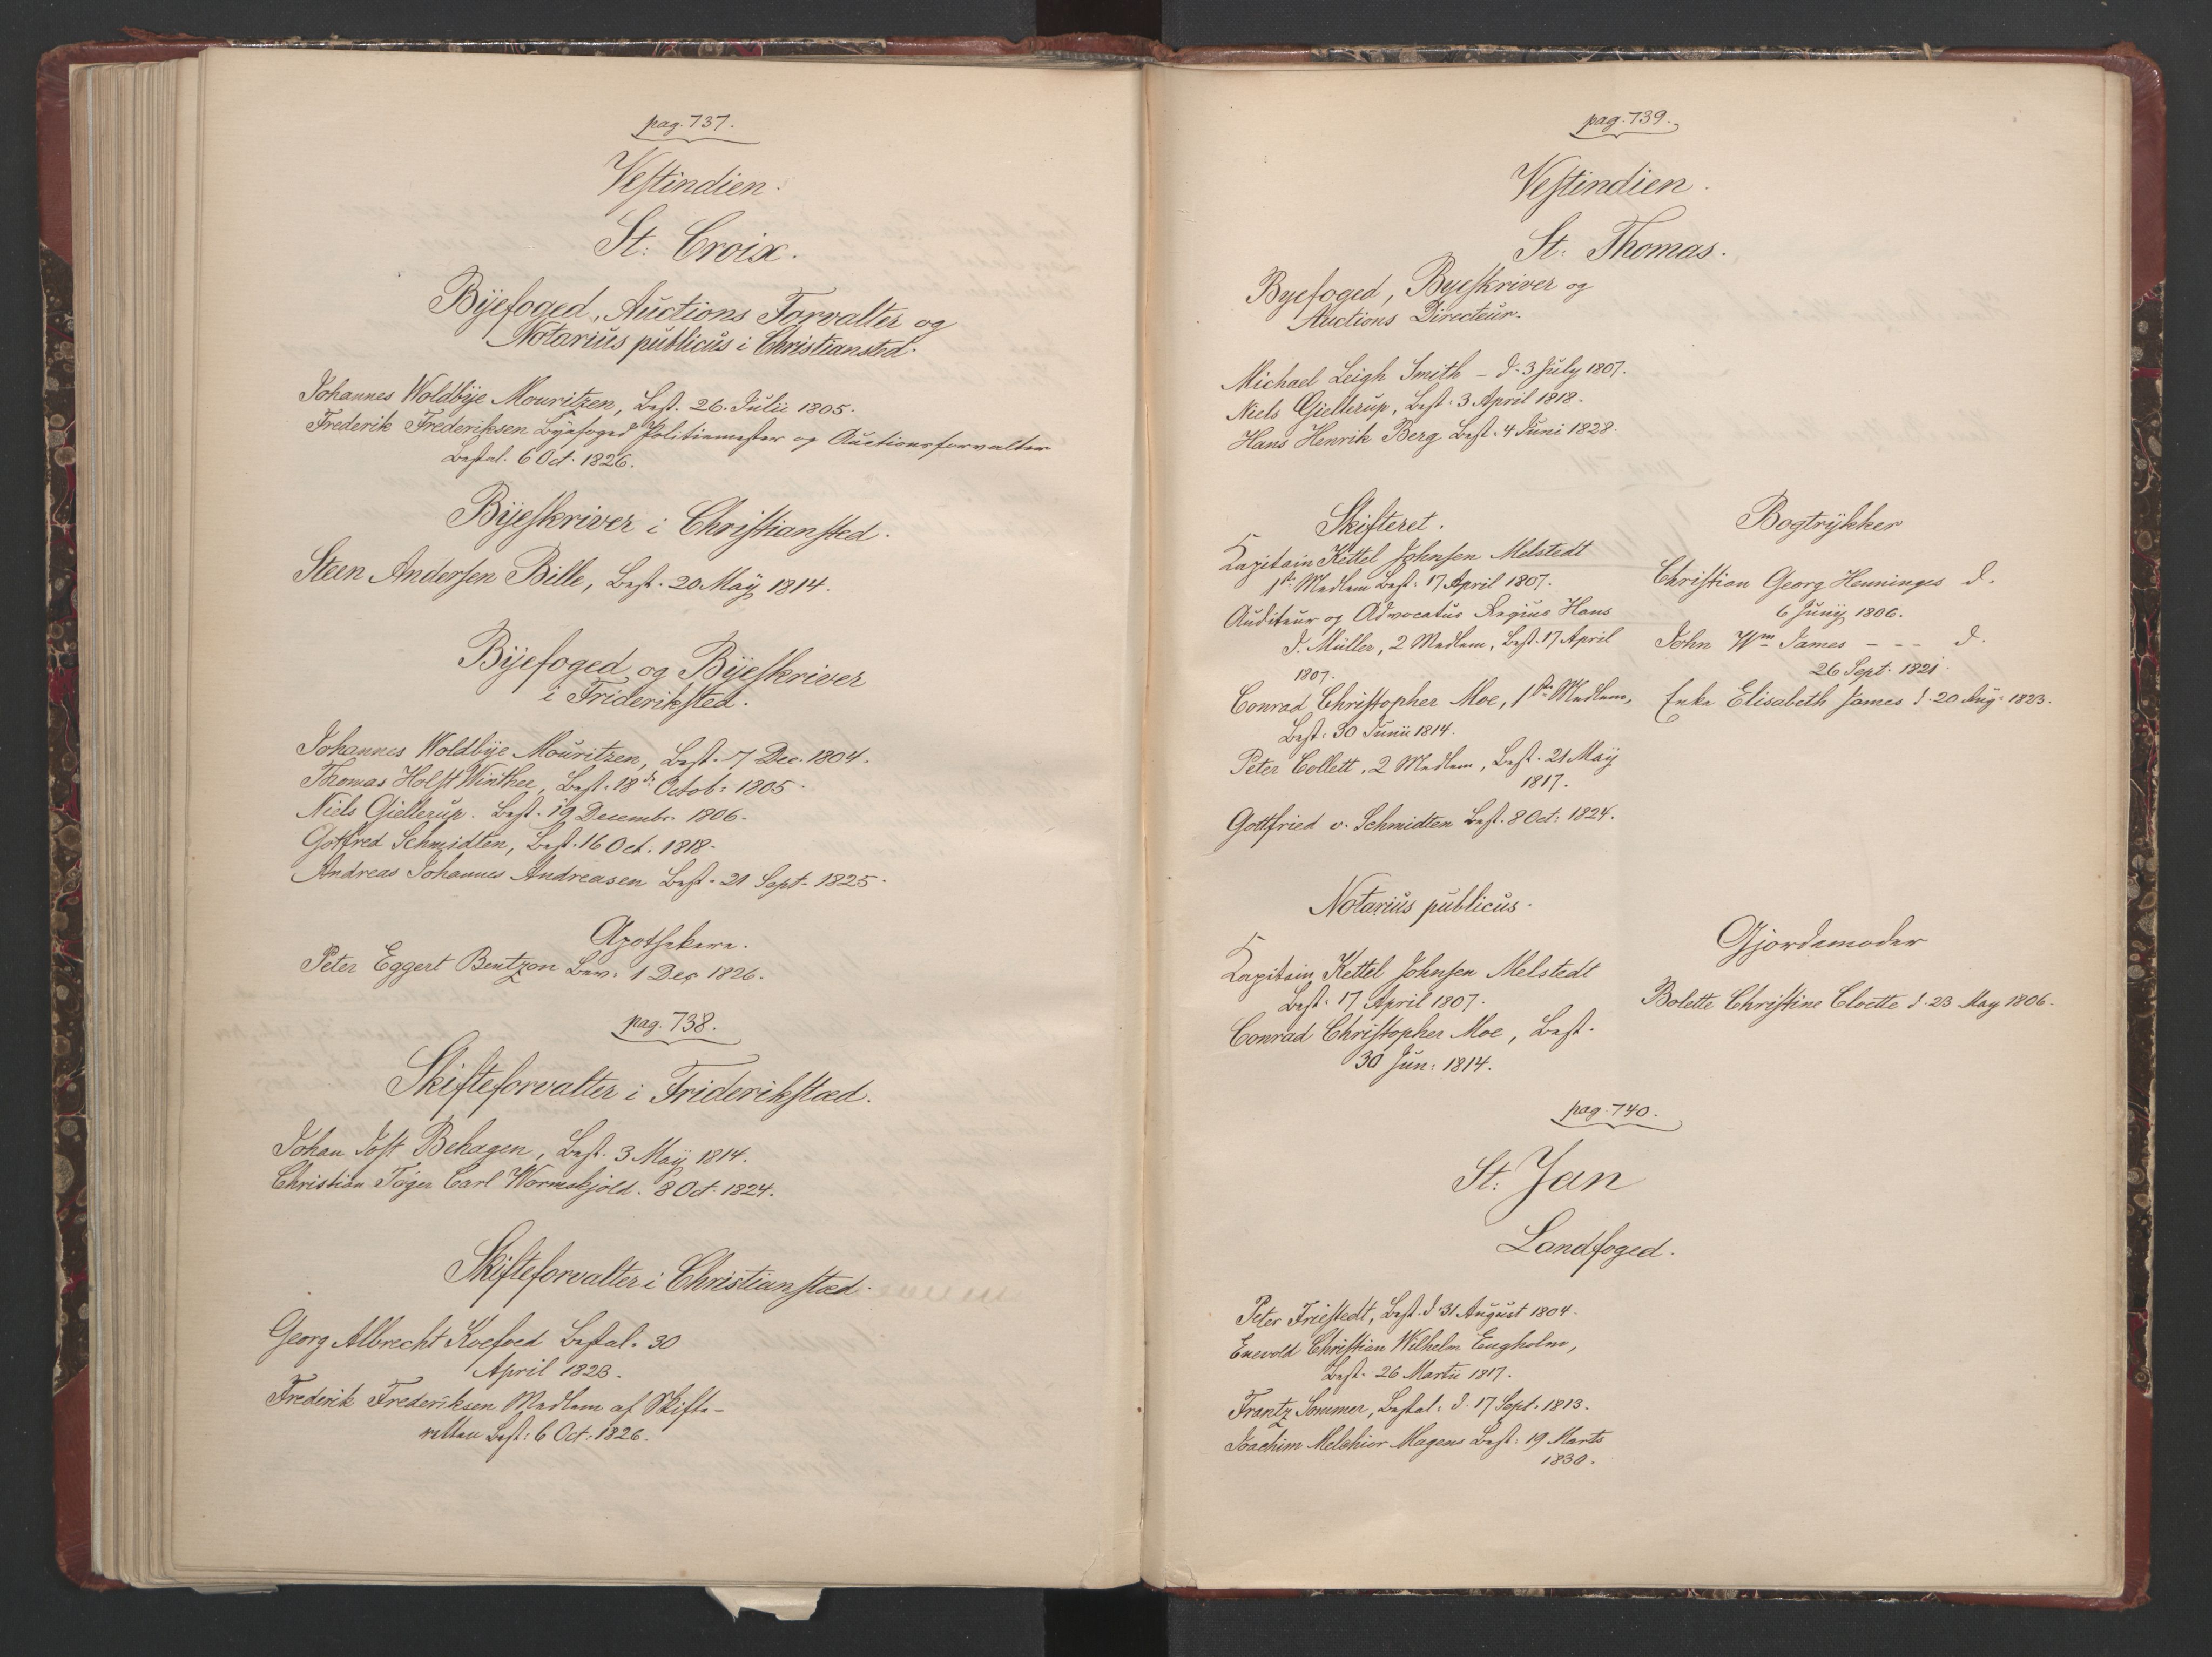 pag. 737.
Vestindien.
St. Croix.
Byefoged, Auctions Forvalter og
Notarius publicus i Christiansted.
Johannes Woldbye Mouritzen, Best. 26. Julii 1805.
Frederik Frederiksen Byefoged Politiemester og Auctionsforvalter
Bestal. 6 Oct. 1826.
Byeskriver i Christiansted.
Steen Andersen Bille, Best. 20 May 1814.
Byefoged og Byeskriver
i Frideriksted.
Johannes Woldbye Mouritzen, Best. 7 Dec. 1804.
Thomas Holst Winther, Best. 18 d. Octob: 1805.
Niels Giellerup. Best. 19 Decembr. 1806.
Gotfred Schmidten, Best. 16 Oct. 1818.
Andreas Johannes Andreasen Best. 21 Sept. 1825.
Apothekere.
Peter Eggert Bentzon Bev. 1 Dec 1826.
pag. 738.
Skifteforvalter i Friderikstæd.
Johan Jost Behagen, Best. 3 May 1814.
Christian Tøger Carl Wormskjold. 8 Oct. 1824.
Skifteforvalter i Christianstæd.
Georg Albrecht Koefoed Bestal. 30
April 1823.
Frederik Frederiksen Medlem af Skifte-
retten Best: 6 Oct: 1826.
pag. 739.
Vestindien.
St. Thomas.
Byefoged, Byeskriver og
Auctions Directeur.
Michael Leigh Smith - d. 3 July 1807.
Niels Giellerup, Best. 3 April 1818.
Hans Henrik Berg Best. 4 Juni 1828.
Skifteret.
Kapitain Kettel Johnsen Melstedt
1ste Medlem Best. 17 April 1807.
Auditeur og Advocatus Regius Hans
J. Müller, 2 Medlem, Best. 17 April
1807.
Conrad Christopher Moe, 1ste Medlem,
Best. 30 Junii 1814.
Peter Collett, 2 Medlem, Best. 21 May
1817.
Gottfried v. Schmidten Best. 8 Oct: 1824.
Bogtrykker
Christian Georg Henninges d.
6 Juny 1806.
John Wm James - - - d.
26 Sept. 1821.
Enke Elisabeth James d. 20 Aug. 1823.
Notarius publicus.
Kapitain Kettel Johnsen Melstedt
Best. 17 April 1807.
Conrad Christopher Moe, Best.
30 Jun: 1814.
Gjordemoder
Bolette Christine Cloëtte d. 23 May 1806.
pag. 740.
St: Jan
Landfoged.
Peter Friestedt, Best. d 31 August 1804.
Enevold Christian Wilhelm Engholm,
Best. 26 Martii 1817.
Frantz Sommer, Bestal: d. 17 Sept. 1813.
Joachim Melchior Magens Best: 19 Marts
1830.